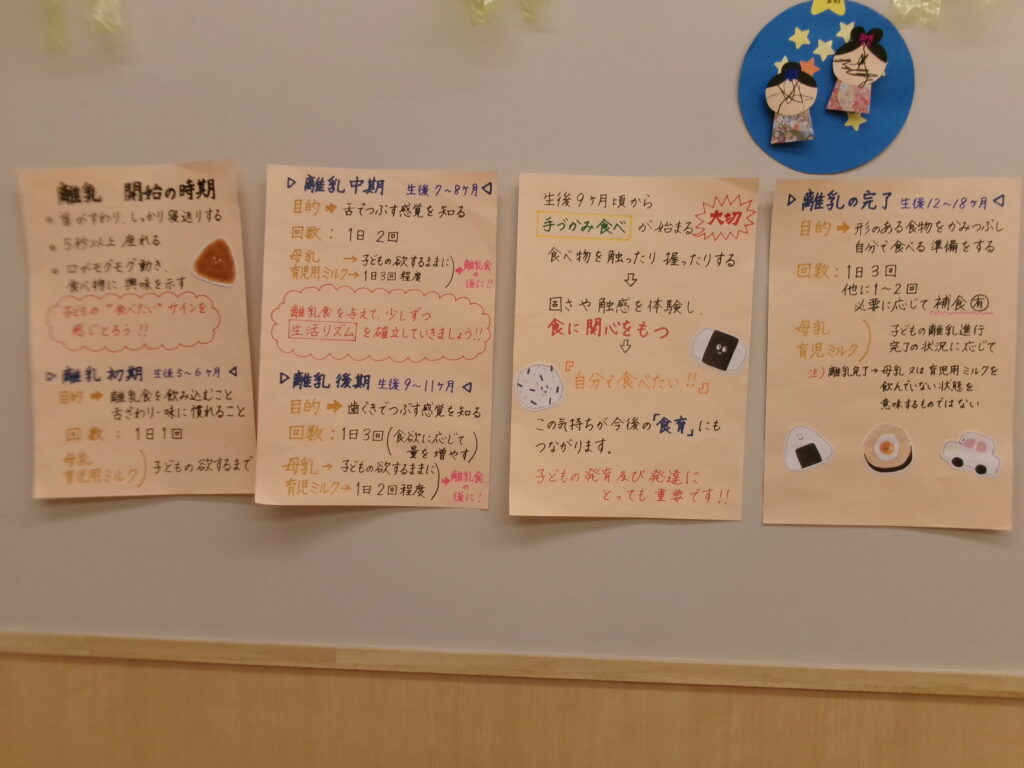 まめ
離乳 開始の時期
首がすわり、しっかり寝返りする
5秒以上 座れる
口がモグモグ動き、
食べ物に 興味を示す
子どもの "食べたい" サインを
感じとろう!!
▷ 離乳 初期 生後5~6ヶ月 ◁
目的 ➡ 離乳食を飲み込むこと
舌ざわり・味に慣れること
回数:1日1回
母乳
育児用ミルク
子どもの欲するまで
▷ 離乳中期 生後7~8ヶ月 ◁
目的 ➡ 舌でつぶす感覚を知る
回数:1日2回
母乳 → 子どもが欲するままに
育児用ミルク → 1日3回程度
離乳食の
後に!!
離乳食を与えて、少しずつ
生活リズム を確立していきましょう!!
▷ 離乳 後期 生後9~11ヶ月 ◁
目的 ➡ 歯ぐきでつぶす感覚を知る
回数:1日3回(食欲に応じて
量を増やす)
母乳 → 子どもの欲するままに
育児ミルク → 1日2回程度
離乳食
の
後に!
生後9ヶ月頃から
手づかみ食べ が始まる
大切
食べ物を触ったり 握ったりする
⇩
固さや触感を体験し、
食に関心をもつ
⇩
『自分で食べたい!!』
この気持ちが今後の「食育」にも
つながります。
子どもの発育及び発達に
とっても重要です!!
▷ 離乳の完了 生後12~18ヶ月 ◁
目的 ➡ 形のある食物をかみつぶし
自分で食べる準備をする
回数:1日3回
他に1~2回
必要に応じて 補食㊒
母乳
育児ミルク
子どもの離乳進行
完了の状況に応じて
注)離乳完了→母乳又は育児用ミルクを
飲んでいない状態を
意味するものではない